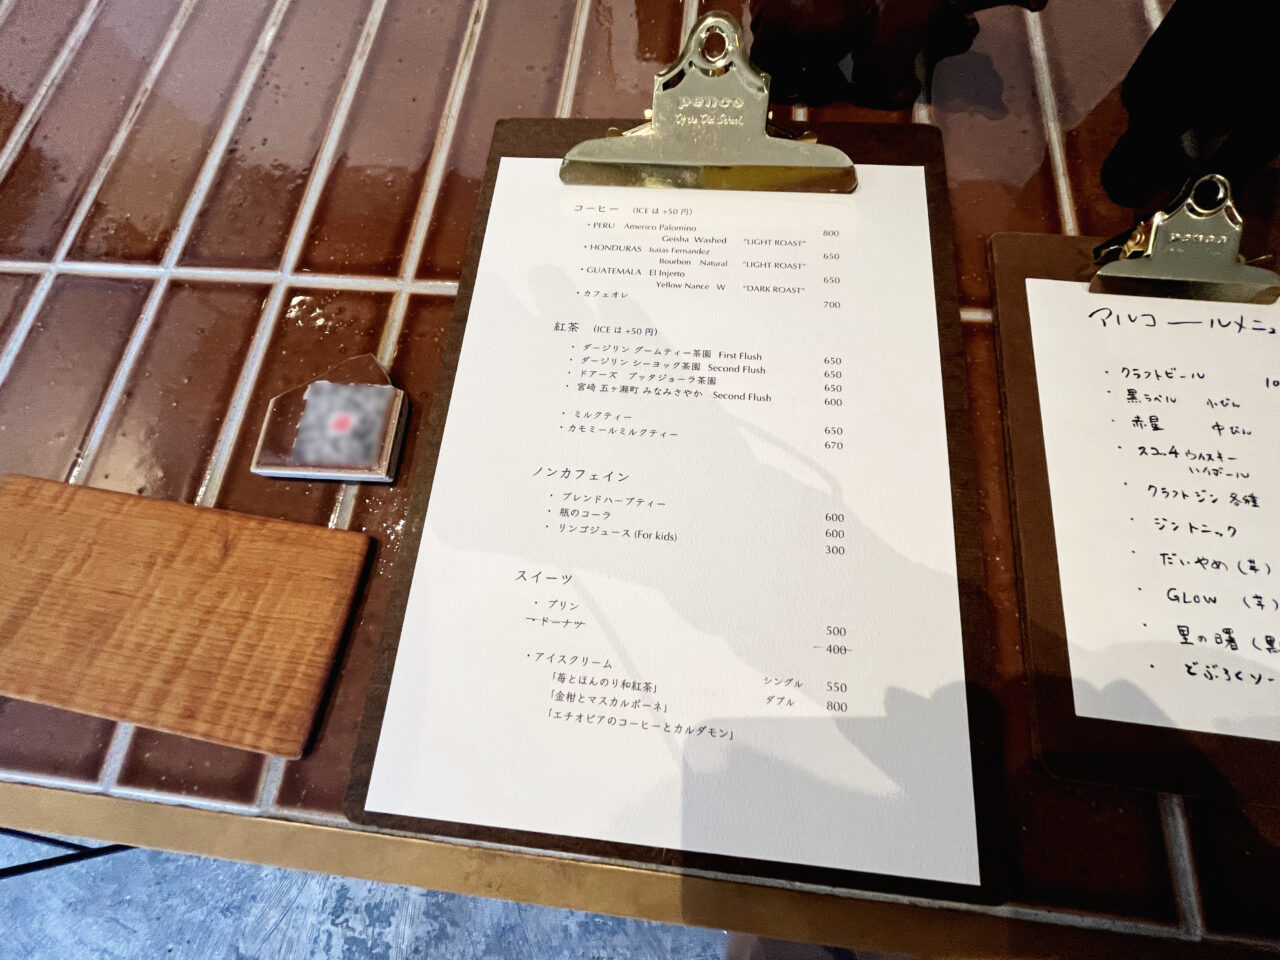 penco
コーヒー （ICE は +50 円）
・PERU Americo Palomino 800
Geisha Washed "LIGHT ROAST"
・HONDURAS Isaias Fernandez 650
Bourbon Natural "LIGHT ROAST"
・GUATEMALA El Injerto 650
Yellow Nance W "DARK ROAST"
・カフェオレ 700
紅茶 （ICE は +50 円）
・ダージリン グームティー茶園 First Flush 650
・ダージリン シーヨック茶園 Second Flush 650
・ドアーズ ブッタジョーラ茶園 650
・宮崎 五ヶ瀬町 みなみさやか Second Flush 600
・ミルクティー 650
・カモミールミルクティー 670
ノンカフェイン
・ブレンドハーブティー 600
・瓶のコーラ 600
・リンゴジュース (For kids) 300
スイーツ
・プリン 500
・ドーナツ 400
・アイスクリーム
「苺とほんのり和紅茶」 シングル 550
「金柑とマスカルポーネ」 ダブル 800
「エチオピアのコーヒーとカルダモン」
penco
アルコールメニュ
・クラフトビール 10
・黒ラベル 小びん
・赤星 中びん
・スコッチウイスキー
ハイボール
・クラフトジン 各種
・ジントニック
・だいやめ（芋）
・GLOW （芋）
・里の曙（黒
・どぶろくソー